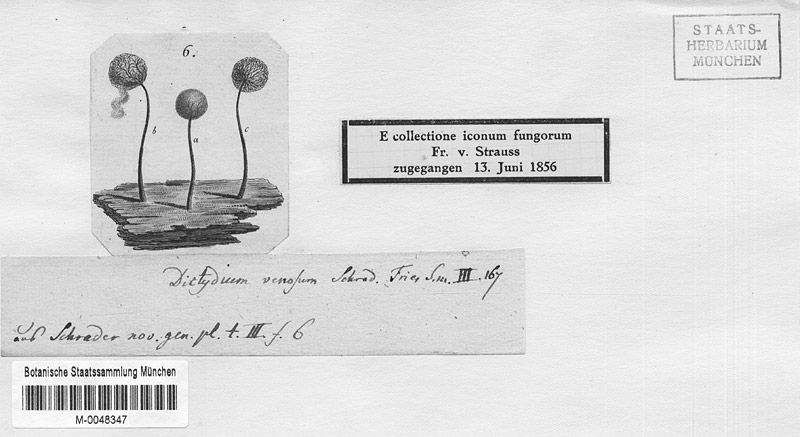 6.
b
a
c
STAATS-
HERBARIUM
MÜNCHEN
E collectione iconum fungorum
Fr. v. Strauss
zugegangen 13. Juni 1856
Dictydium venosum Schrad. Fries S.m. III. 167
aus Schrader nov. gen. pl. t. III f. 6
Botanische Staatssammlung München
M-0048347